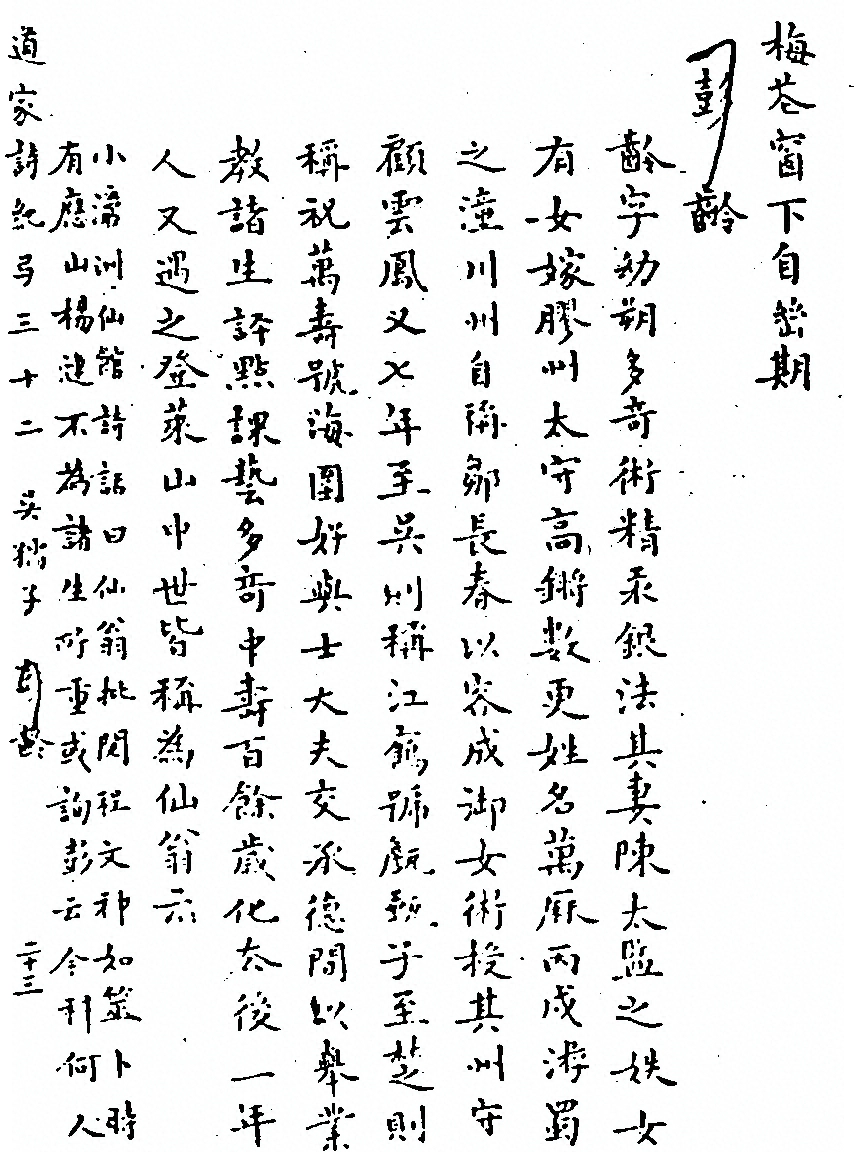 梅花窗下自幽期
彭
齡
齡字幼朔多奇術精汞銀法其妻陳太監之姪女
有女嫁膠州太守高鏘數更姓名萬厤丙戌游蜀
之潼川州自稱鄒長春以容成御女術授其州守
顧雲鳳又七年至吳則稱江鶴號瓠瓢子至楚則
稱祝萬壽號海圍好與士大夫交承德間以舉業
教諸生評點課藝多奇中壽百餘歲化去後一年
人又遇之登萊山中世皆稱為仙翁云
小滄洲仙館詩話曰仙翁批閱程文神如筮卜時
有應山楊漣不為諸生所重或詢彭云今科何人
道家詩紀弓三十二 吳猶子 彭齡 二十三